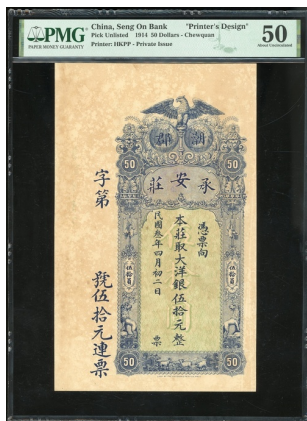 PMG
PAPER MONEY GUARANTY
China, Seng On Bank "Printer's Design"
Pick Unlisted 1914 50 Dollars - Chewquan
Printer: HKPP - Private Issue
50
About Uncirculated
潮郡
50 50
承安莊
憑票向
本莊取大洋銀伍拾元整
票
民國叁年四月初二日
字第
號伍拾元連票
伍拾員
伍拾員
50 50